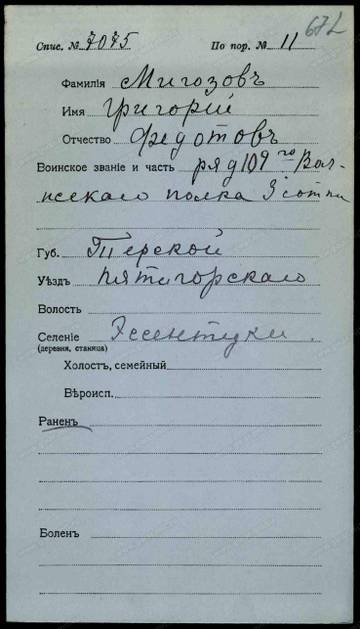 672
Спис. № 7075 По пор. № 11
Фамилія Мигозовъ
Имя Григорій
Отчество Федотовъ
Воинское званіе и часть ряд 109 го Вол-
жскаго полка 3 сотни
Губ. Терской
Уѣздъ Пятигорскаго
Волость
Селеніе Эссентуки.
(деревня, станица)
Холост, семейный
Вѣроисп.
Раненъ
Боленъ